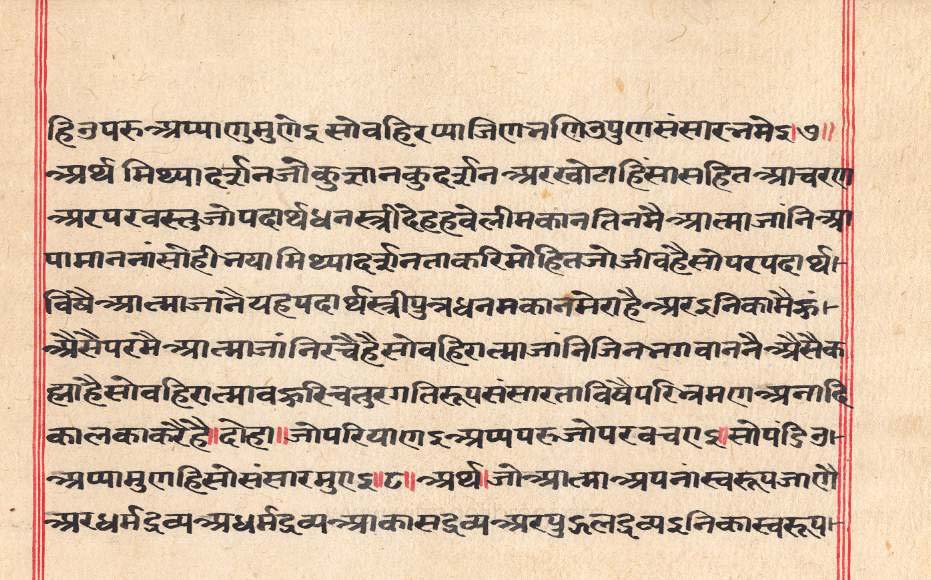 हिउपरुअप्पाणुमुणेइ सोवहिरप्पाजिणभणिउपुणसंसारभमेइ।७॥
अर्थ मिथ्यादर्शनजोकुज्ञानकुदर्शन अरखोटाहिंसासहितआचरण
अरपरवस्तुजोपदार्थधनस्त्रीदेहहवेलीमकांनतिनमैआत्माजांनिआ
पामाननांसोहीनयामिथ्यादर्शनताकरिमोहितजोजीवहैसोपरपदार्थ।-
विषैआत्माजांनैयहपदार्थस्त्रीपुत्रधनमकानमेराहैअरइनिकामैहूं।-
अैसैपरमैआत्माजांनिरचैहैसोवहिरात्माजांनिजिनभगवाननैअैसैक
ह्याहैसोवहिरात्मावहुरिचतुरगतिरूपसंसारताविषैपरिभ्रमणअनादि
कालकाकरैहै॥दोहा॥जोपरियाणइअप्पपरुजोपरवचएइ॥सोपंडिउ।-
अप्पामुणहिसोसंसारमुएइ॥८॥अर्थ।जोआत्माअपनांस्वरूपजाणै
अरधर्मद्रव्यअधर्मद्रव्यआकासद्रव्यअरपुद्गलद्रव्यइनिकास्वरूप।-